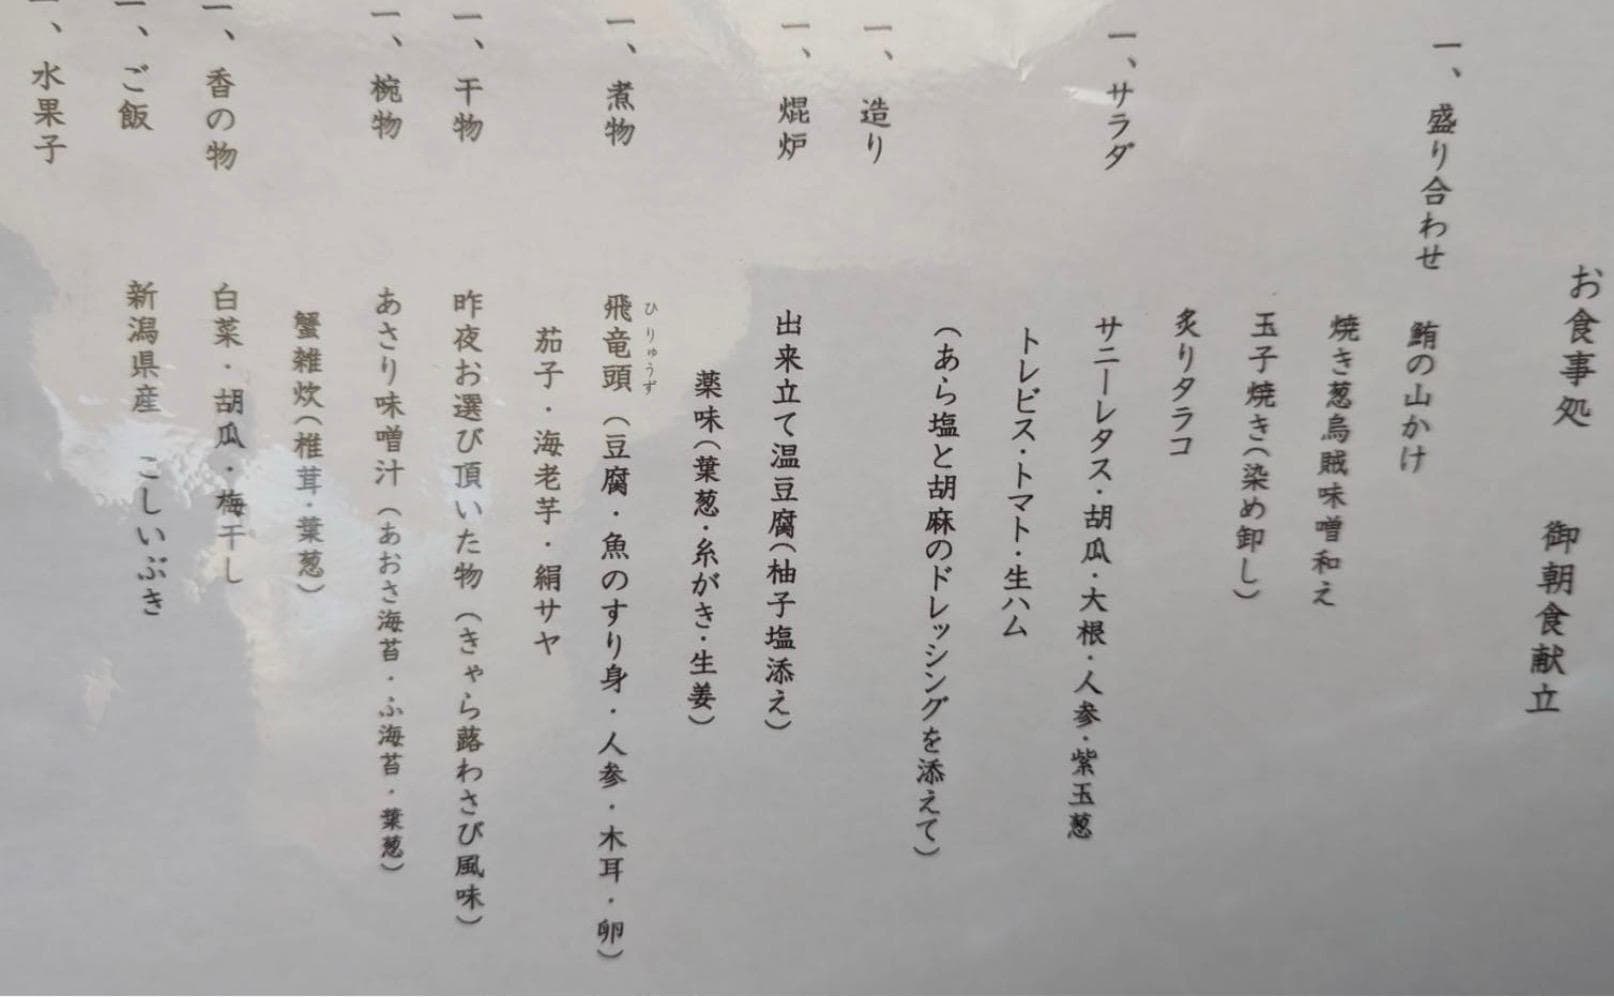 お食事処　御朝食献立
一、盛り合わせ　鮪の山かけ
焼き葱烏賊味噌和え
玉子焼き（染め卸し）
炙りタラコ
一、サラダ　サニーレタス・胡瓜・大根・人参・紫玉葱
トレビス・トマト・生ハム
（あら塩と胡麻のドレッシングを添えて）
一、造り
一、焜炉　出来立て温豆腐（柚子塩添え）
薬味（葉葱・糸がき・生姜）
ひりゅうず
一、煮物　飛竜頭（豆腐・魚のすり身・人参・木耳・卵）
茄子・海老芋・絹サヤ
一、干物　昨夜お選び頂いた物（きゃら蕗わさび風味）
一、椀物　あさり味噌汁（あおさ海苔・ふ海苔・葉葱）
蟹雑炊（椎茸・葉葱）
一、香の物　白菜・胡瓜・梅干し
一、ご飯　新潟県産　こしいぶき
一、水果子